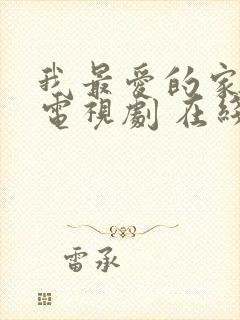 我最愛的家
電視劇 在線
雷承